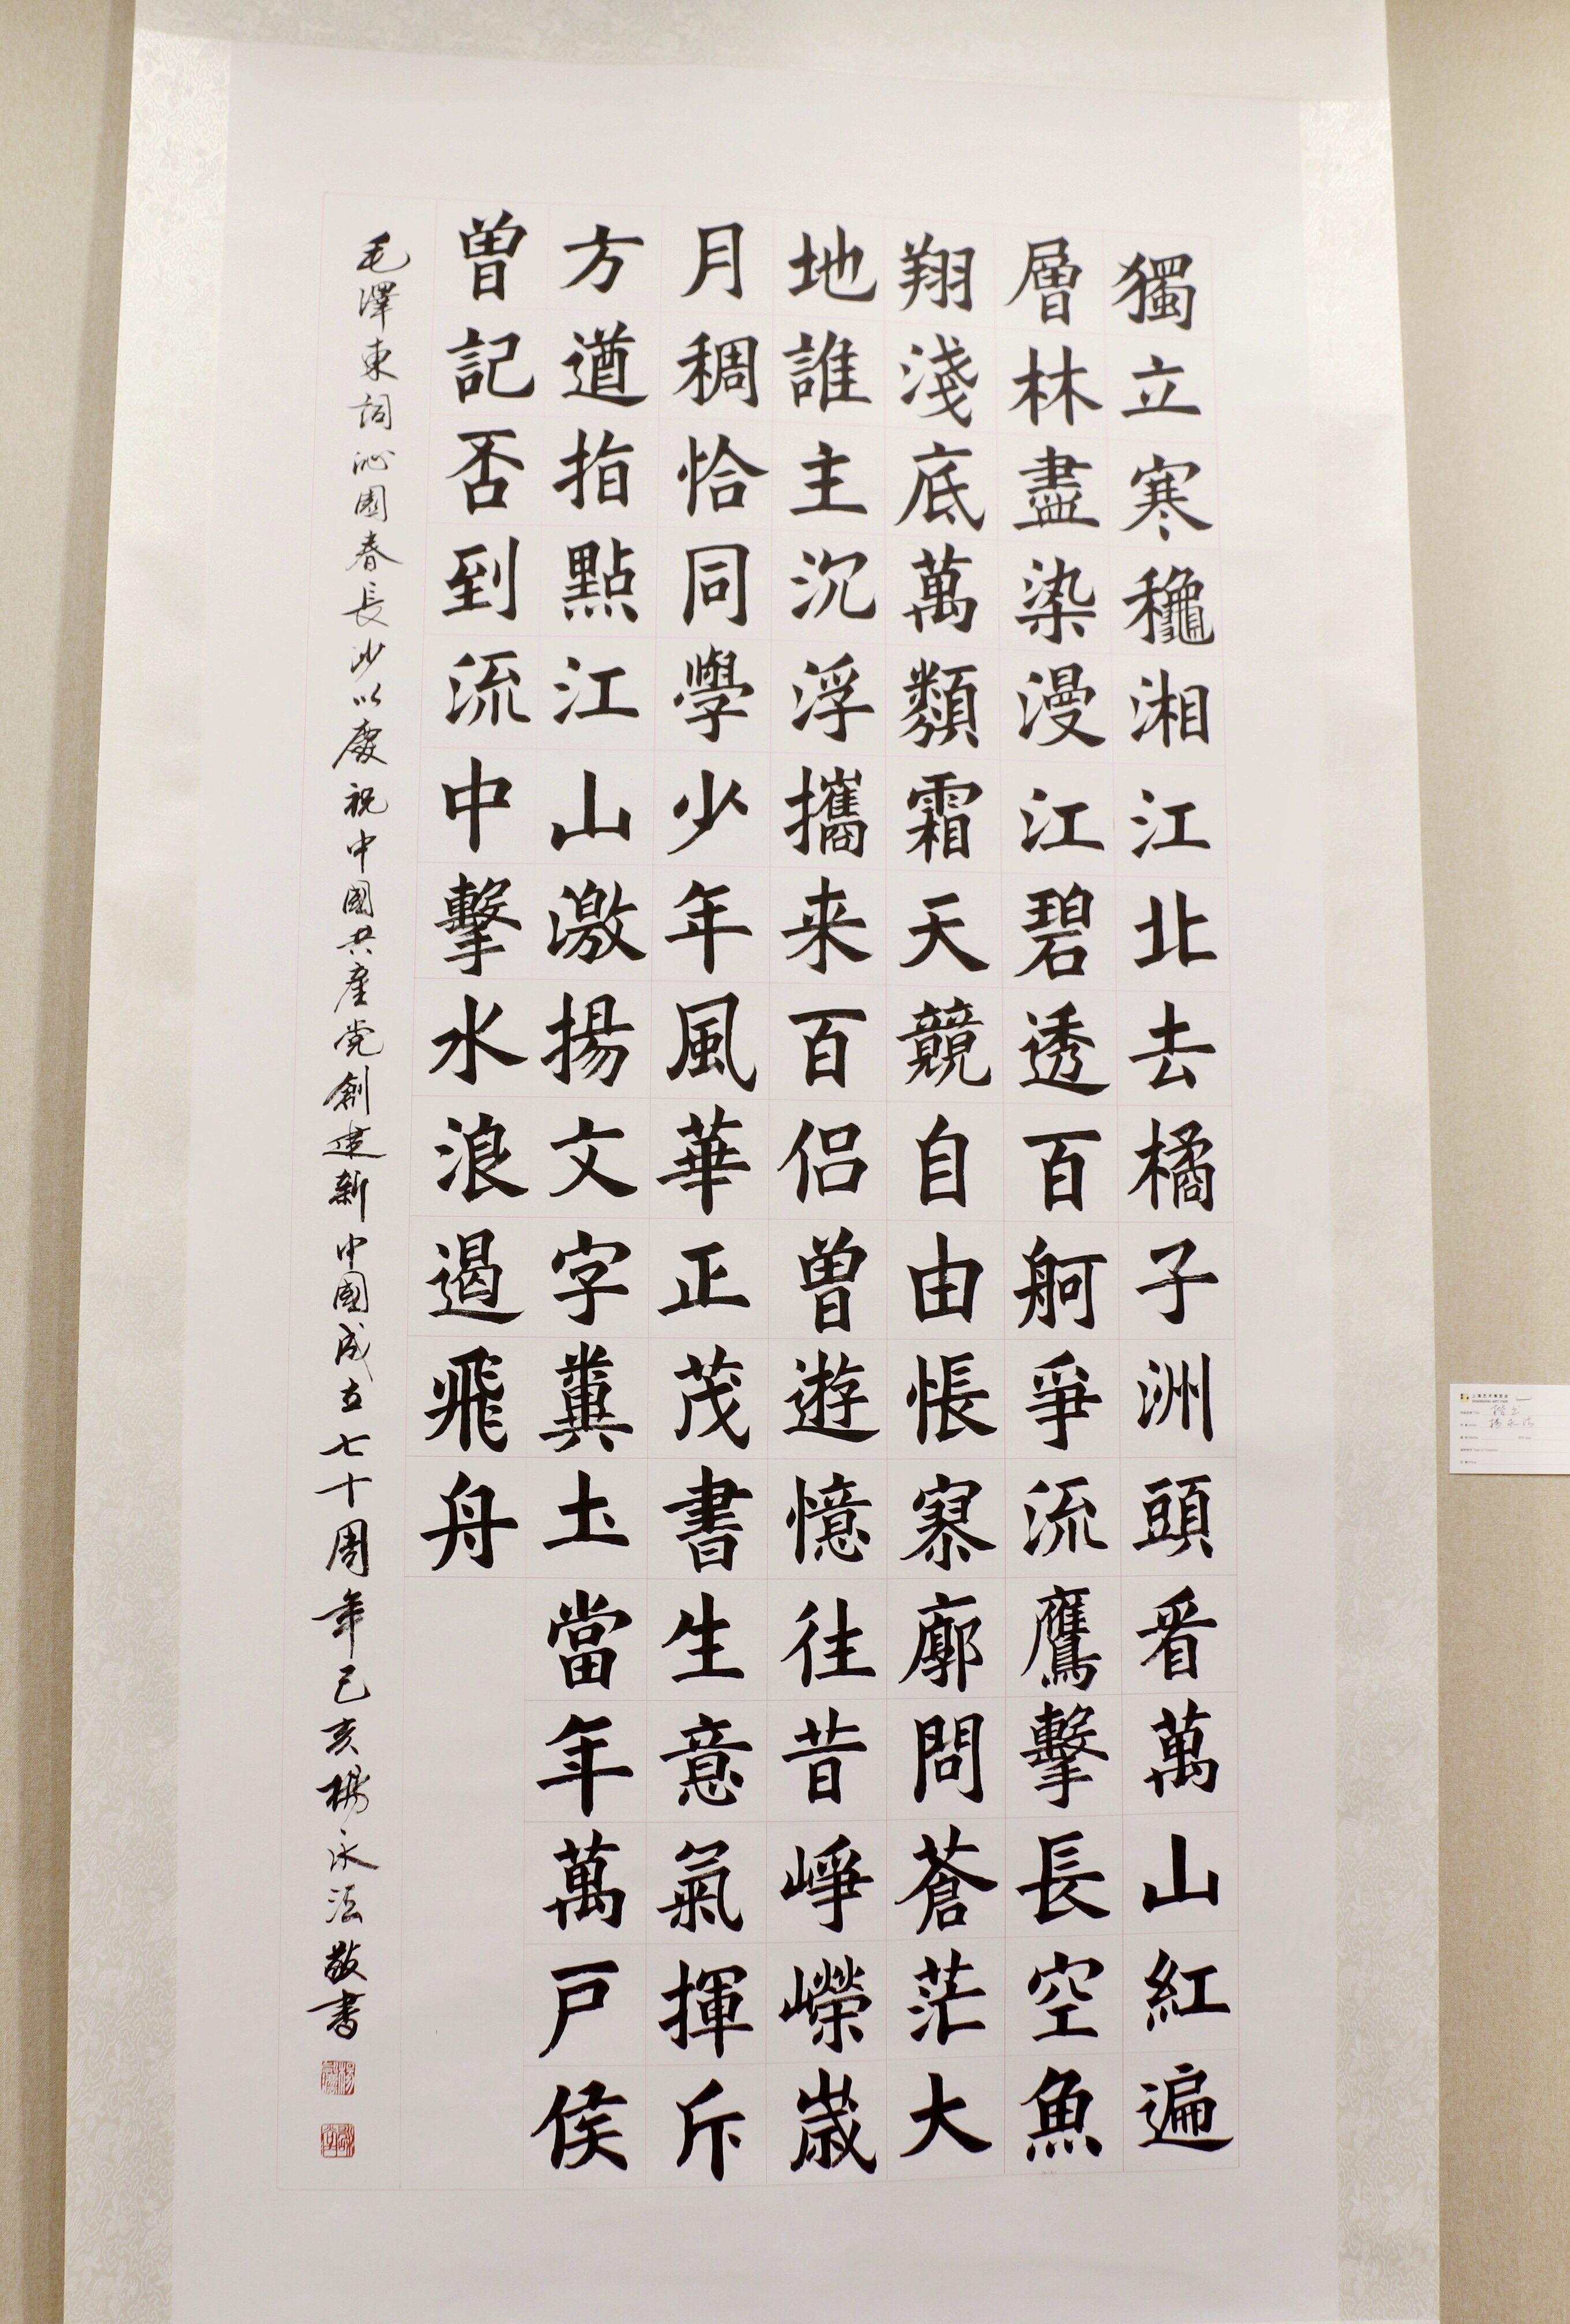 獨立寒龝湘江北去橘子洲頭看萬山紅遍
層林盡染漫江碧透百舸爭流鷹擊長空魚
翔淺底萬類霜天競自由悵寥廓問蒼茫大
地誰主沉浮攜来百侣曾遊憶往昔崢嶸歲
月稠恰同學少年風華正茂書生意氣揮斥
方遒指點江山激揚文字糞土當年萬户侯
曾記否到流中擊水浪遏飛舟
毛澤東詞沁園春長沙以慶祝中國共產党創建新中國成立七十周年己亥楊永法敬書